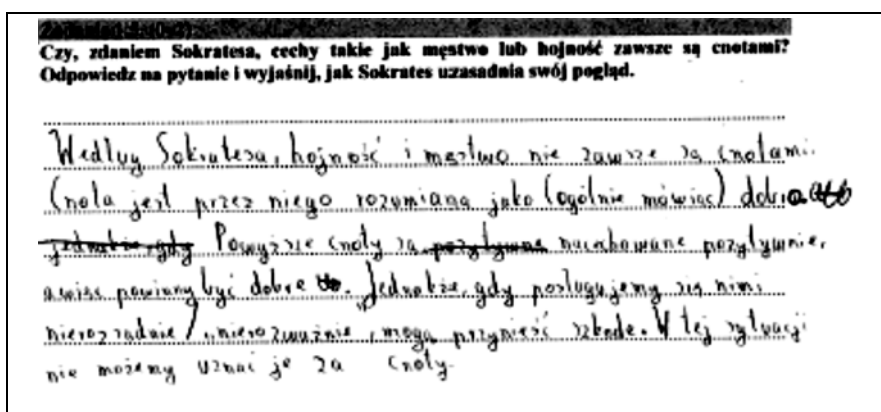 Czy, zdaniem Sokratesa, cechy takie jak męstwo lub hojność zawsze są cnotami?
Odpowiedz na pytanie i wyjaśnij, jak Sokrates uzasadnia swój pogląd.
Według Sokratesa, hojność i męstwo nie zawsze są cnotami.
Cnota jest przez niego rozumiana jako (ogólnie mówiąc) dobra
jednakże, gdy Powyższe cnoty są pozytywne nacechowane pozytywnie,
a więc powinny być dobre. Jednakże, gdy posługujemy się nimi
nierozsądnie / nierozważnie, mogą przynieść szkodę. W tej sytuacji
nie możemy uznać je za cnoty.